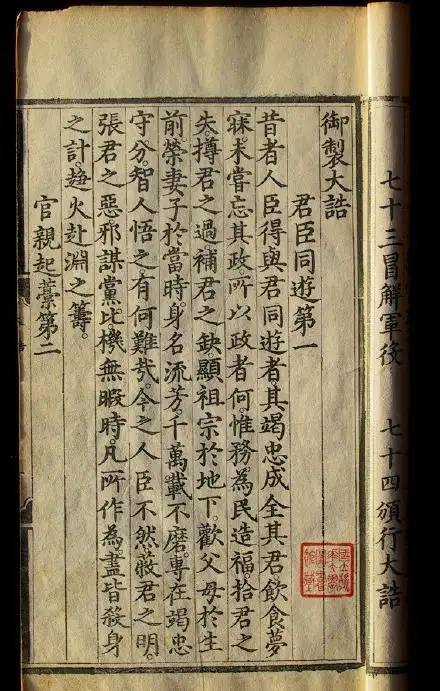 七十三冒解軍役 七十四頒行大誥
御製大誥
君臣同遊第一
昔者人臣得與君同遊者。其竭忠成全其君。飲食夢
寐。未嘗忘其政。所以政者何。惟務為民造福。拾君之
失。撙君之過。補君之缺。顯祖宗於地下。歡父母於生
前。榮妻子於當時。身名流芳。千萬載不磨。專在竭忠
守分。智人悟之。有何難哉。今之人臣不然。蔽君之明。
張君之惡。邪謀黨比。機無暇時。凡所作為。盡皆殺身
之計。趨火赴淵之籌。
官親起藁第二